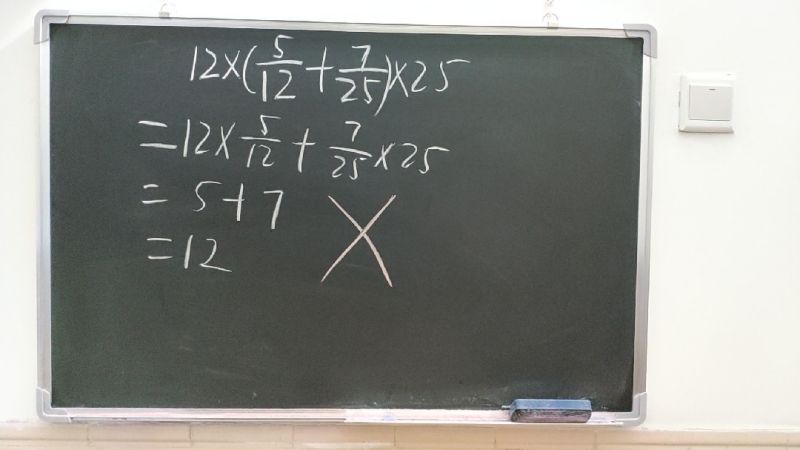 12×(5/12+7/25)×25
=12×5/12+7/25×25
=5+7
=12
×